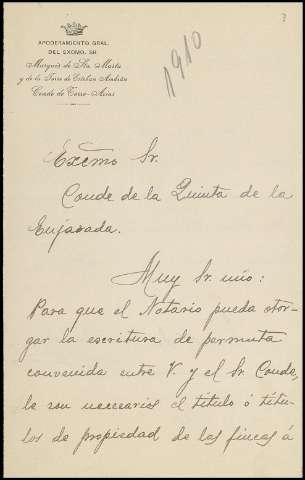 3
1910
APODERAMIENTO GRAL.
DEL EXCMO. SR.
Marqués de Sta. Marta
y de la Torre de Esteban Hambrán
Conde de Torre-Arias
Excmo Sr.
Conde de la Quinta de la
Enjarada.
Muy Sr. mío:
Para que el Notario pueda otor-
gar la escritura de permuta
convenida entre V. y el Sr. Conde,
le son necesarios el título ó títu-
los de propiedad de las fincas á